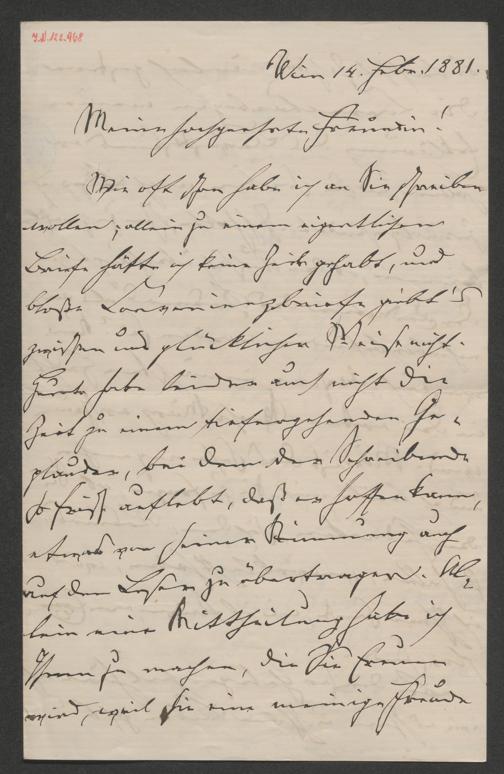 I.N. 122.968
Wien 14. Febr. 1881.
Meine hochgeehrte Freundin!
Wie oft schon habe ich an Sie schreiben
wollen, allein zu einem eigentlichen
Briefe hätte ich keine Zeit gehabt, und
bloße Convenienzbriefe giebt's
zwischen uns glücklicher Weise nicht.
Heute habe leider auch nicht die
Zeit zu einem tiefergehenden Ge-
plauder, bei dem der Schreibende
so frisch auflebt, daß er hoffen kann,
etwas von seiner Stimmung auch
auf den Leser zu übertragen. Al-
lein eine Mittheilung habe ich
Ihnen zu machen, die Sie freuen
wird, weil sie eine meinige Freude